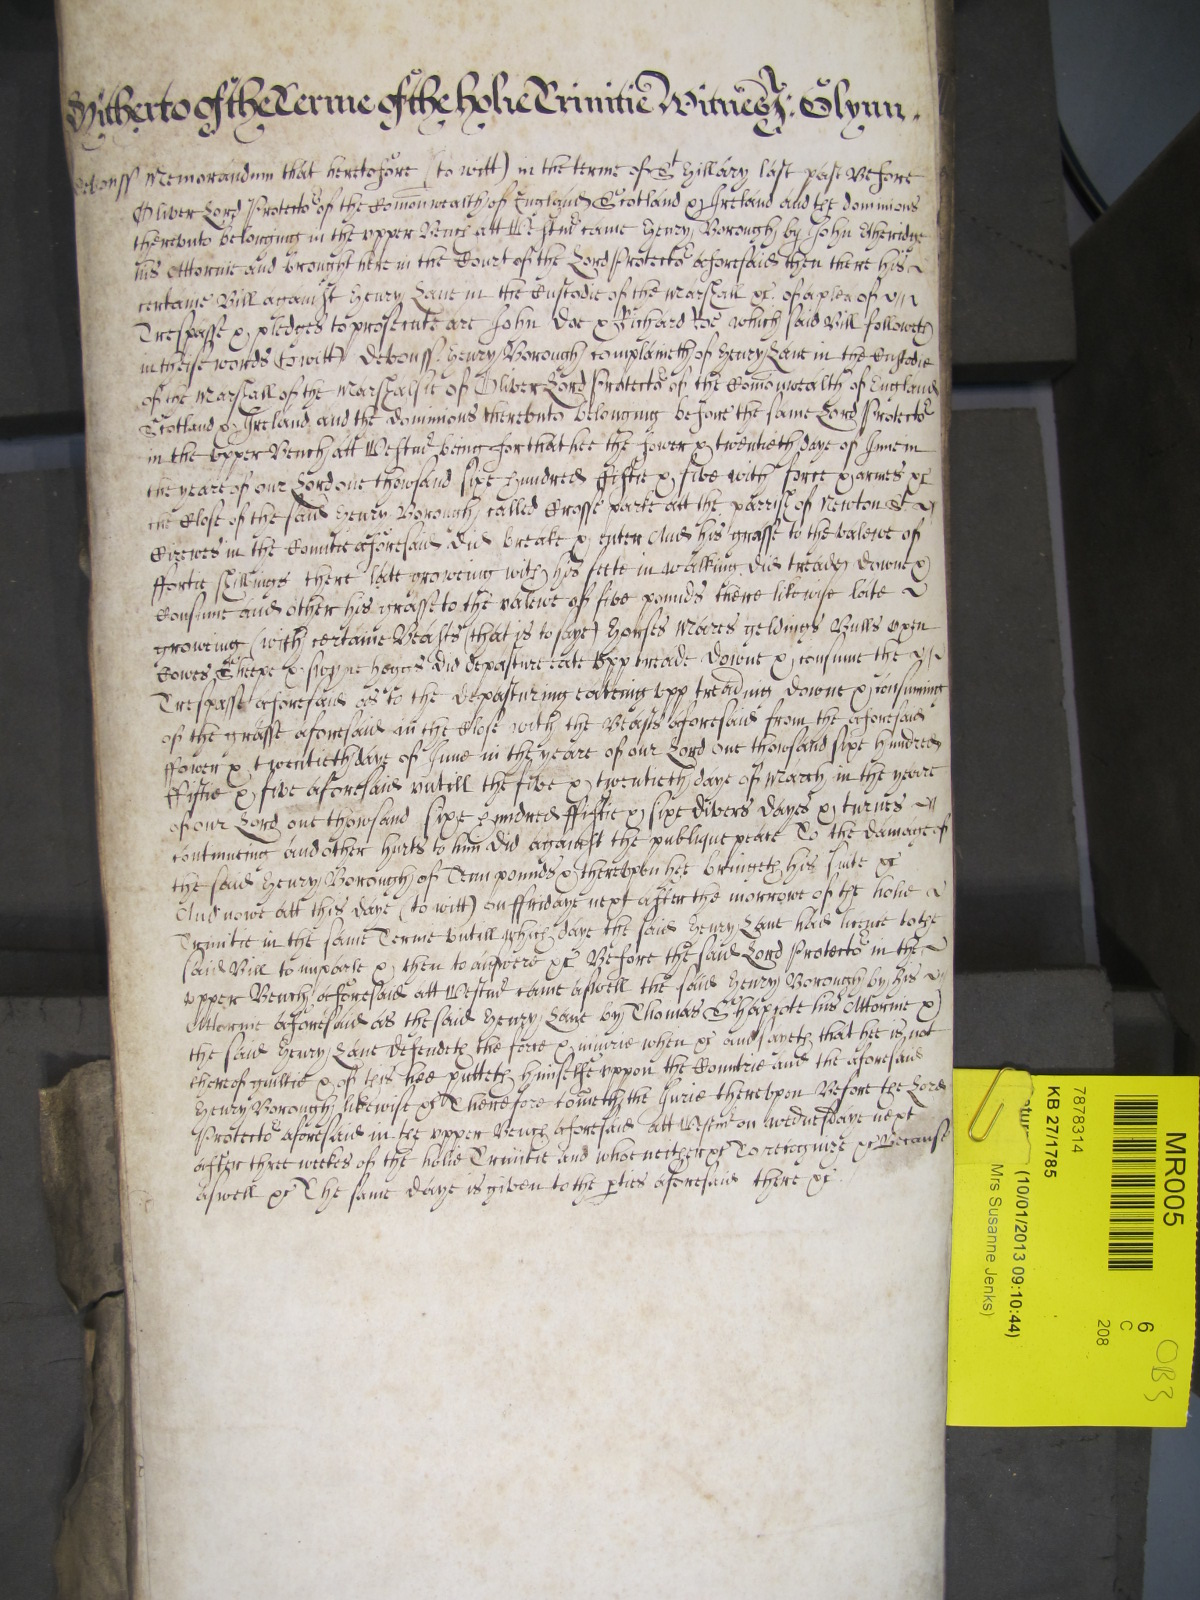 Hitherto of the Terme of the holie Trinitie Witnes J: Glynn.
Devon ss Memorandum that heretofore (to witt) in the terme of St Hillary last past Before
Oliver Lord Protector of the Comonwealth of England Scotland & Ireland and the dominions
thereunto belonging in the upper Bench att Westmr came Henry Borough by John Etheridge
his Attornie and brought here in the Court of the Lord Protector aforesaid then there his
certaine Bill against Henry Lane in the Custodie of the Marshall &c. of a plea of
Trespasse & pledges to prosecute are John Doe & Richard Roe which said Bill followeth
in theise words (to witt) Devon ss. Henry Borough complaineth of Henry Lane in the Custodie
of the Marshall of the Marshalsie of Oliver Lord Protector of the Comonwealth of England
Scotland & Ireland and the dominions thereunto belonging before the same Lord Protector
in the upper Bench att Westmr being for that hee the fower & twentieth daye of June in
the yeare of our Lord one thowsand sixe hundred fiftie & five with force & armes &c
the Close of the said Henry Borough called Crosse parke att the parrish of Newton St
Cirewes in the Countie aforesaid did breake & enter And his grasse to the valewe of
ffortie shillings there late groweing with his feete in walking did treade downe &
Consume and other his grasse to the valewe of five pounds there likewise late
growing (with certaine Beasts (that is to saye) horses Mares geldings Bulls Oxen
Cowes Sheepe & swyne hogges did depasture eate upp treade downe & consume the
Trespasse aforesaid as to the depasturing eateing upp treading downe & consuming
of the grasse aforesaid in the Close with the Beasts aforesaid from the aforesaid
ffower & twentieth daye of June in the yeare of our Lord one thowsand sixe hundred
ffiftie & five aforesaid untill the five & twentieth daye of March in the yeare
of our Lord one thowsand sixe hundred ffiftie & sixe divers dayes & turnes
continueing and other hurts to him did against the publique peace To the damage of
the said Henry Borough of Tenn pounds & thereupon hee bringeth his suite &c
And nowe att this daye (to witt) on ffridaye next after the morrowe of the holie
Trinitie in the same Terme untill which daye the said Henry Lane had licence to the
said Bill to imparle & then to answere &c Before the said Lord Protector in the
upper Bench aforesaid att Westmr came aswell the said Henry Borough by his
Attornie aforesaid as the said Henry Lane by Thomas Shapcote his Attornie &
the said Henry Lane defendeth the force & iniurie when &c and sayeth that hee is not
thereof guiltie & of this hee putteth himselfe uppon the Countrie and the aforesaid
Henry Borough likewise &c Therefore cometh the Jurie thereupon Before the Lord
Protector aforesaid in the upper Bench aforesaid att Westmr on wednesdaye next
after three weekes of the holie Trinitie and whoe neither &c To recognize &c Because
aswell &c The same daye is given to the pties aforesaid there &c.
MR005
6
C
208
OB3
7878314
KB 27/1785
(10/01/2013 09:10:44)
Mrs Susanne Jenks)